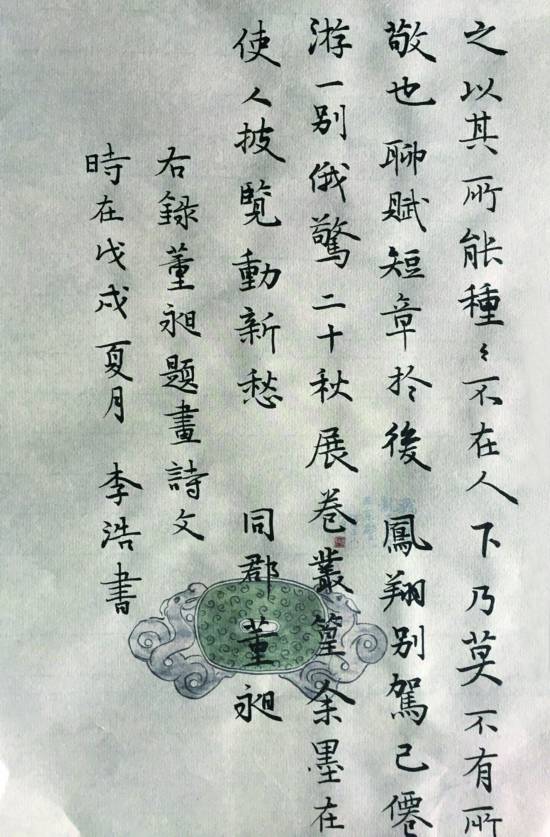 之以其所能種〻不在人下乃莫不有所
敬也聊賦短章於後 鳳翔别駕已僊
游一别俄驚二十秋展卷叢篁余墨在
使人披覧動新愁 同郡董昶
右録董昶題畫詩文
時在戊戌夏月 李浩書